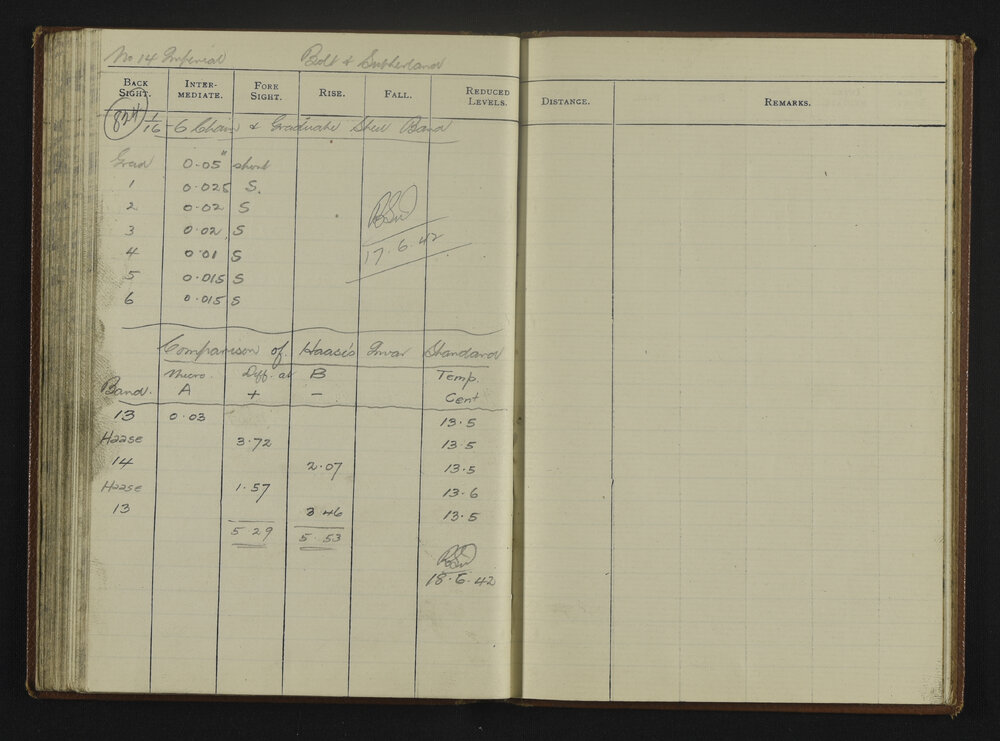 No 14 Imperial Bolt & Sutherland
BACK SIGHT. INTER-MEDIATE. FORE SIGHT. RISE. FALL. REDUCED LEVELS. DISTANCE. REMARKS.
824 1/16 - 6 Chain & Graduate Steel Band
Grad 0.05" short
1 0.025 S.
2 0.02 S
3 0.02 S
4 0.01 S
5 0.015 S
6 0.015 S
17.6.42
Comparison of Haase's Invar Standard
Micro. Diff. at B Temp.
Band. A + - Cent
13 0.03 13.5
Haase 3.72 13.5
14 2.07 13.5
Haase 1.57 13.6
13 3 46 13.5
5 29 5.53
18.6.42